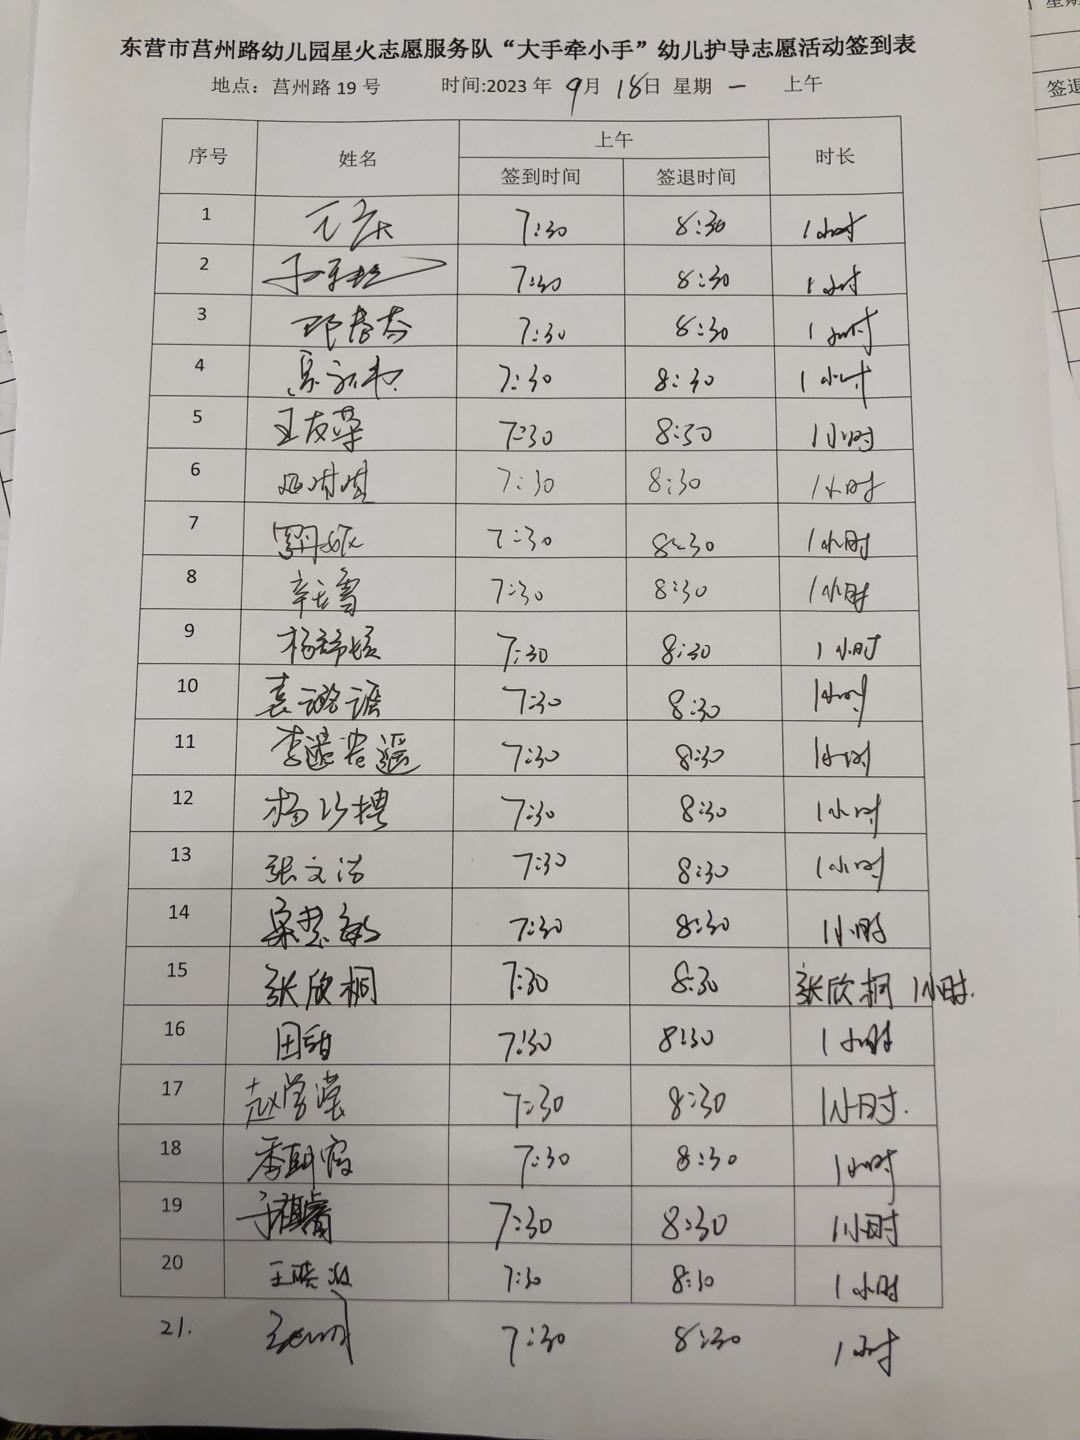 东营市莒州路幼儿园星火志愿服务队“大手牵小手”幼儿护导志愿活动签到表
地点：莒州路 19 号 时间:2023 年 9月 18日 星期 一 上午
序号 姓名 上午 时长
签到时间 签退时间
1 7:30 8:30 1小时
2 7:30 8:30 1小时
3 7:30 8:30 1小时
4 7:30 8:30 1小时
5 王友荣 7:30 8:30 1小时
6 7:30 8:30 1小时
7 7:30 8:30 1小时
8 7:30 8:30 1小时
9 7:30 8:30 1小时
10 袁璐谣 7:30 8:30 1小时
11 7:30 8:30 1小时
12 7:30 8:30 1小时
13 张文洁 7:30 8:30 1小时
14 梁慧敏 7:30 8:30 1小时
15 张欣桐 7:30 8:30 张欣桐 1小时.
16 田甜 7:30 8:30 1小时
17 赵学莹 7:30 8:30 1小时.
18 7:30 8:30 1小时
19 7:30 8:30 1小时
20 7:30 8:30 1小时
21. 7:30 8:30 1小时
签退